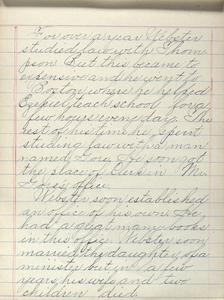 For over a year Webster
studied law with Thom
pson. But this became to
expensive and he went to
Boston where he helped
Ezekiel teach school for a
few hours every day. The
rest of his time he spent
studing law with a man
named Gore. He soon got
the place of Clerk in Mr.
office.
Webster soon established
an office of his own. He
had a great many books
in this office. Webster soon
married the daughter of a
ministry but in a few
years, his wife and two
children died.